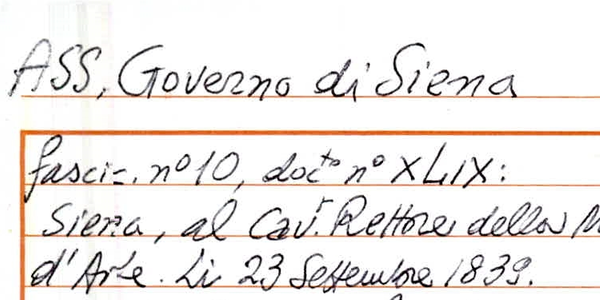 ASS, Governo di Siena
fasc. n° 10, doc.to n° XLIX:
Siena, al Cav.r Rettore della
d'Arte. Li 23 Settembre 1839.